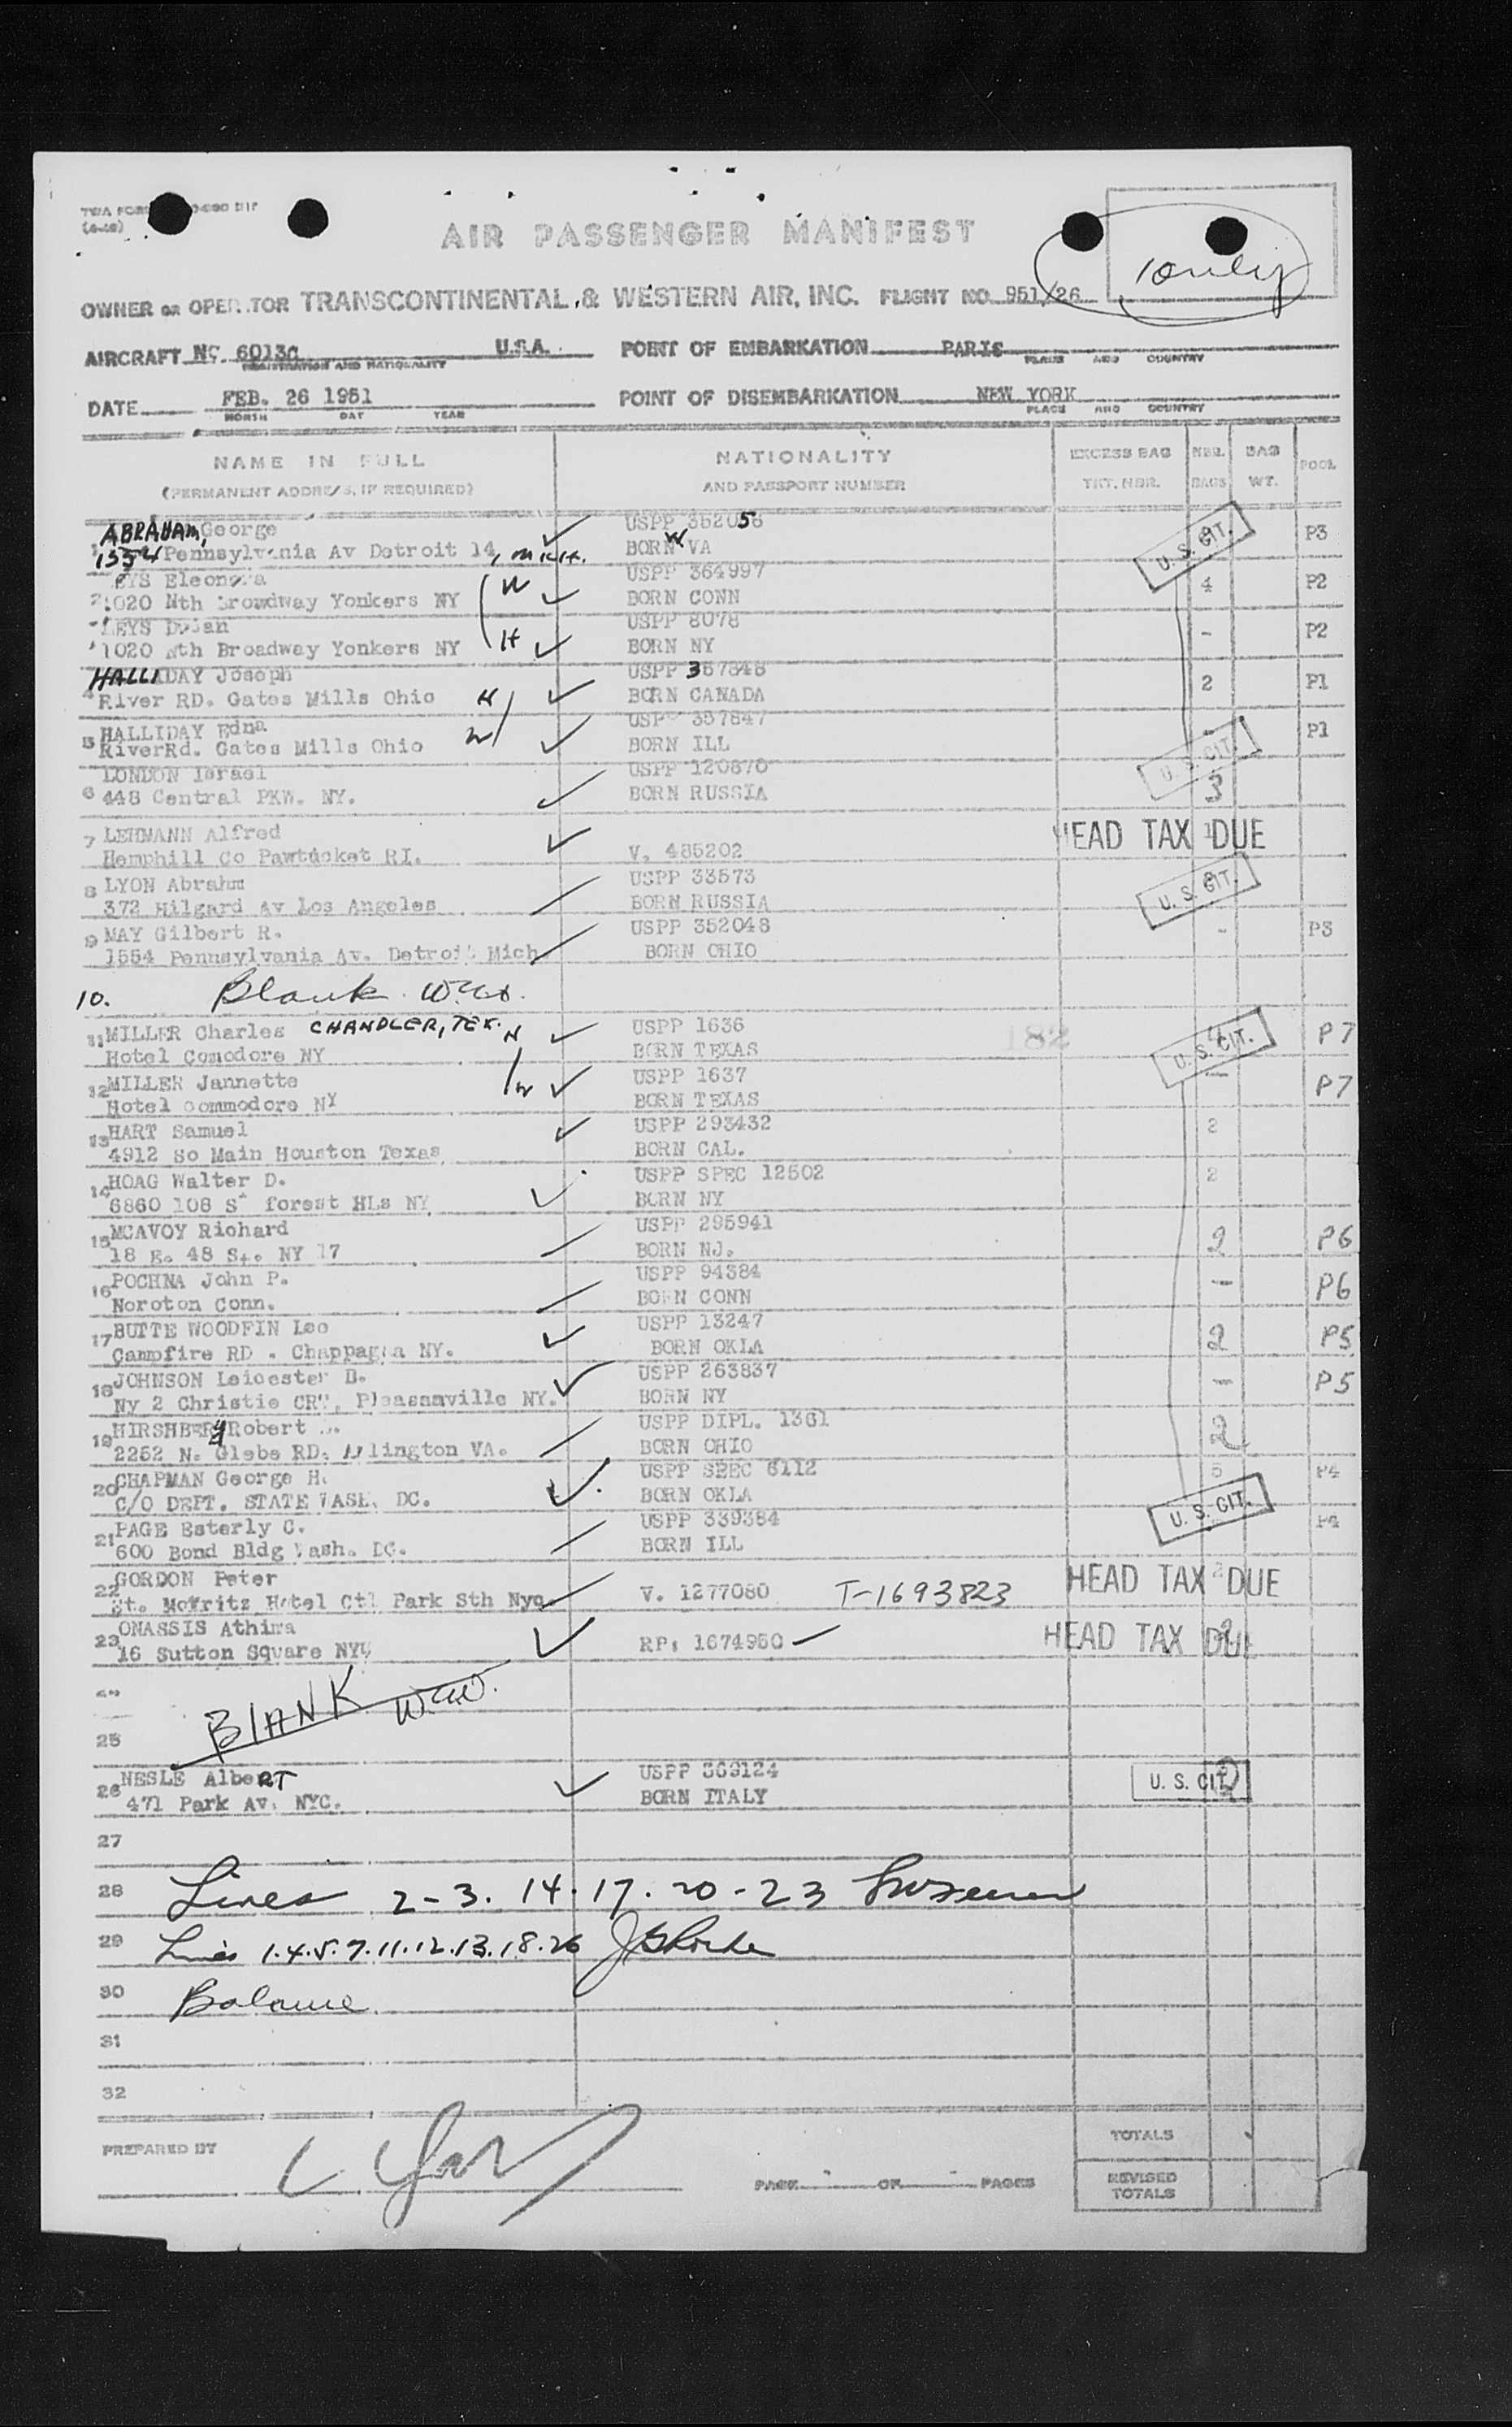 TWA FORM
AIR PASSENGER MANIFEST
only
OWNER OR OPERATOR TRANSCONTINENTAL & WESTERN AIR, INC. FLIGHT NO. 951/26
AIRCRAFT NC 6013C U.S.A. POINT OF EMBARKATION PARIS
REGISTRATION AND NATIONALITY PLACE AND COUNTRY
DATE FEB. 26 1951 POINT OF DISEMBARKATION NEW YORK
MONTH DAY YEAR PLACE AND COUNTRY
NAME IN FULL NATIONALITY EXCESS BAG NBR. BAG POOL
(PERMANENT ADDRESS, IF REQUIRED) AND PASSPORT NUMBER TKT. NBR. BAGS WT.
ABRAHAM, George USPP 352056 U.S. CIT. P3
1554 Pennsylvania Av Detroit 14, MICH. BORN W VA
EYS Eleonora W USPP 364997 4 P2
2 1020 Nth Broadway Yonkers NY BORN CONN
LEYS USPP 8078 - P2
1020 Nth Broadway Yonkers NY H BORN NY
HALLIDAY Joseph USPP 357848 2 P1
4 River RD. Gates Mills Ohio H BORN CANADA
HALLIDAY Edna USPP 357847 - P1
5 RiverRd. Gates Mills Ohio W BORN ILL U.S. CIT.
LONDON Israel USPP 120870 3
6 448 Central PKW. NY. BORN RUSSIA
7 LEHMANN Alfred HEAD TAX DUE 1
Hemphill Co Pawtucket RI. V. 485202
8 LYON Abrahm USPP 33573 U.S. CIT.
372 Hilgard Av Los Angeles BORN RUSSIA
9 MAY Gilbert R. USPP 352048 - P3
1554 Pennsylvania Av. Detroit Mich BORN OHIO
10. Blank
11 MILLER Charles CHANDLER, TEX. H USPP 1636 182 4 U.S. CIT. P7
Hotel Comodore NY BORN TEXAS
12 MILLER Jannette W USPP 1637 - P7
Hotel Commodore NY BORN TEXAS
13 HART Samuel USPP 293432 2
4912 So Main Houston Texas BORN CAL.
14 HOAG Walter D. USPP SPEC 12502 2
6860 108 St forest HLs NY BORN NY
15 MCAVOY Richard USPP 295941 2 P6
18 E. 48 St. NY 17 BORN NJ.
16 POCHNA John P. USPP 94384 - P6
Noroton Conn. BORN CONN
17 BUTTE WOODFIN Leo USPP 13247 2 P5
Campfire RD . Chappaqua NY. BORN OKLA
18 JOHNSON Leicester B. USPP 263837 - P5
Ny 2 Christie CRT, Pleasanville NY. BORN NY
19 HIRSHBERG Robert USPP DIPL. 1361 2
2252 N. Glebe RD. Arlington VA. BORN OHIO
20 CHAPMAN George H. USPP SPEC 6112 5 P4
C/O DEPT. STATE WASH. DC. BORN OKLA U.S. CIT.
21 PAGE Esterly C. USPP 339384 P4
600 Bond Bldg Wash. DC. BORN ILL
22 GORDON Peter HEAD TAX DUE 2
St. Moritz Hotel Ctl Park Sth Nyc V. 1277080 T-1693823
23 ONASSIS Athina HEAD TAX DUE 2
16 Sutton Square NYC RP: 1674950
24
BLANK
25
26 NESLE AlbeRT USPP 369124 U.S. CIT. 2
471 Park Av. NYC. BORN ITALY
27
28 Lines 2-3. 14. 17. 20-23
29 Lines 1.4.5.7.11.12.13.18.26
30 Balance
31
32
PREPARED BY TOTALS
PAGE OF PAGES REVISED
TOTALS